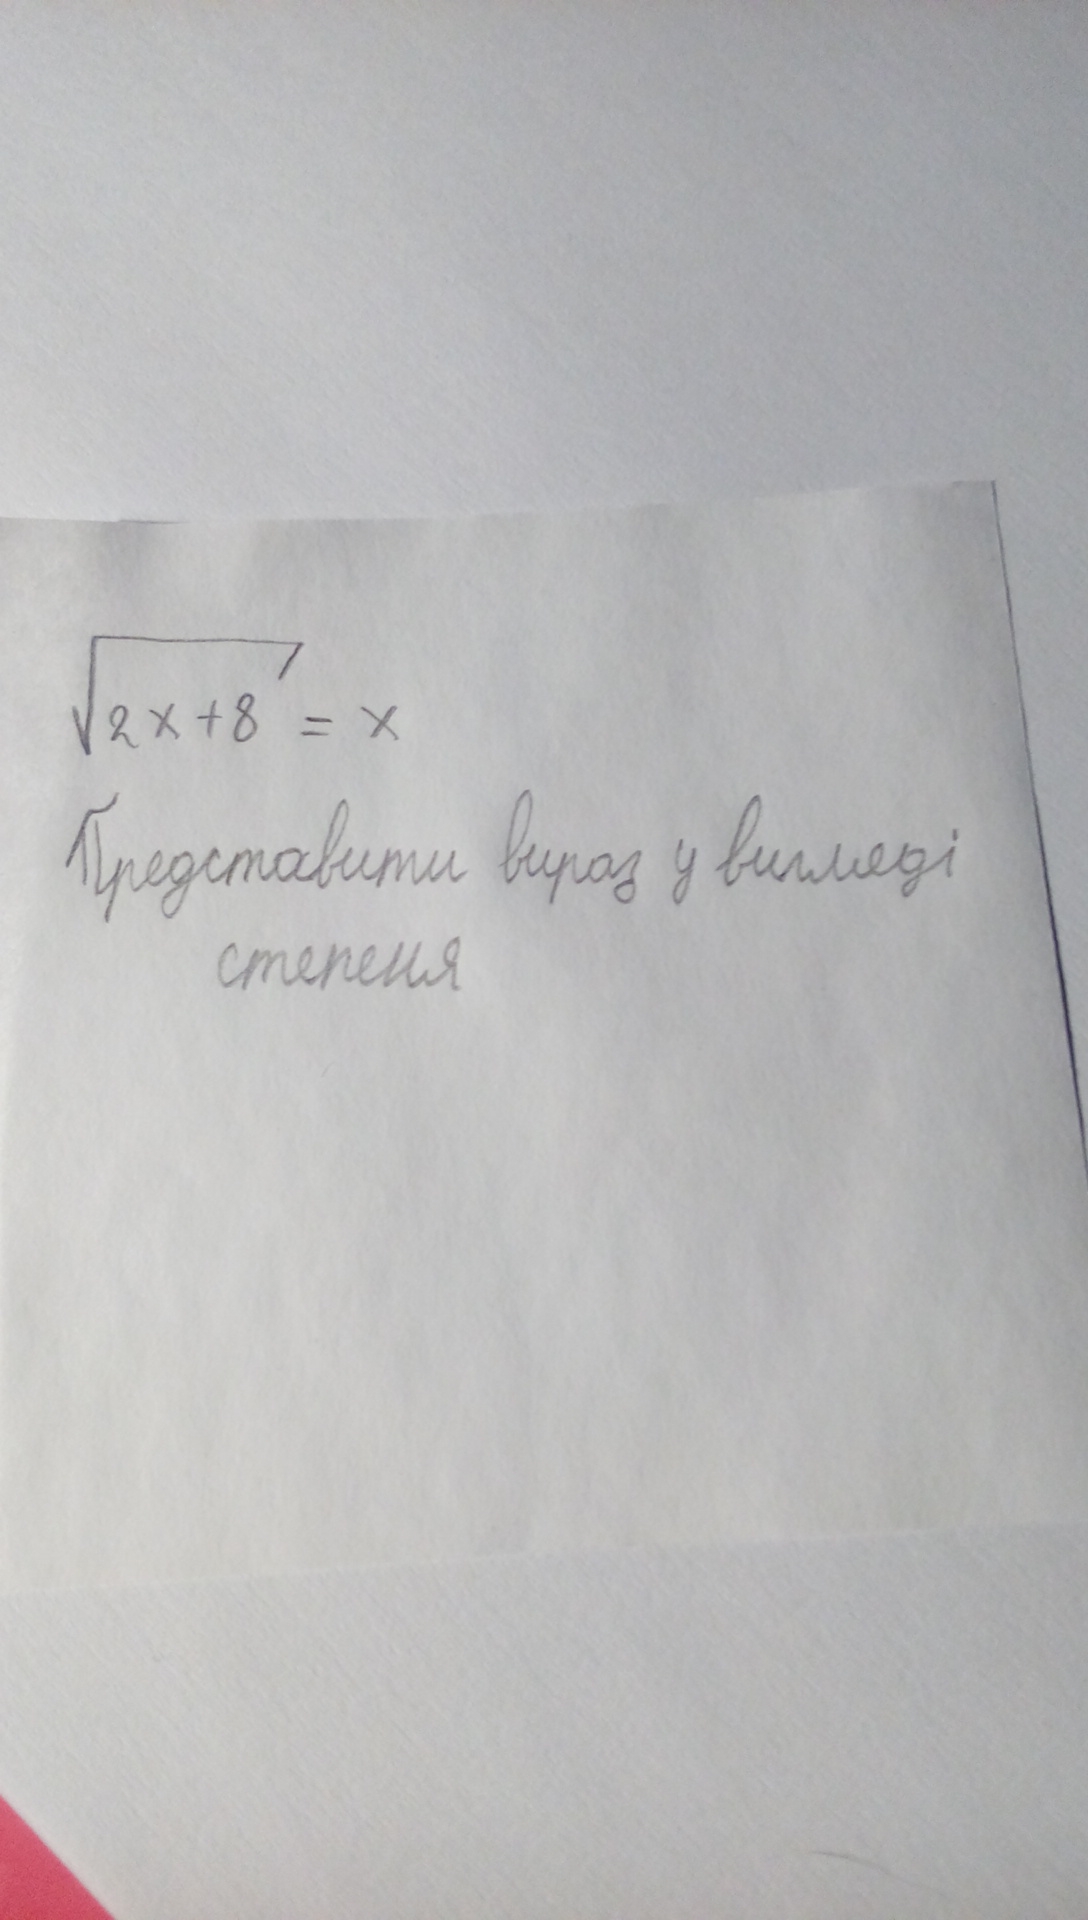 √2x+8 = x
Представити вираз у вигляді
степеня